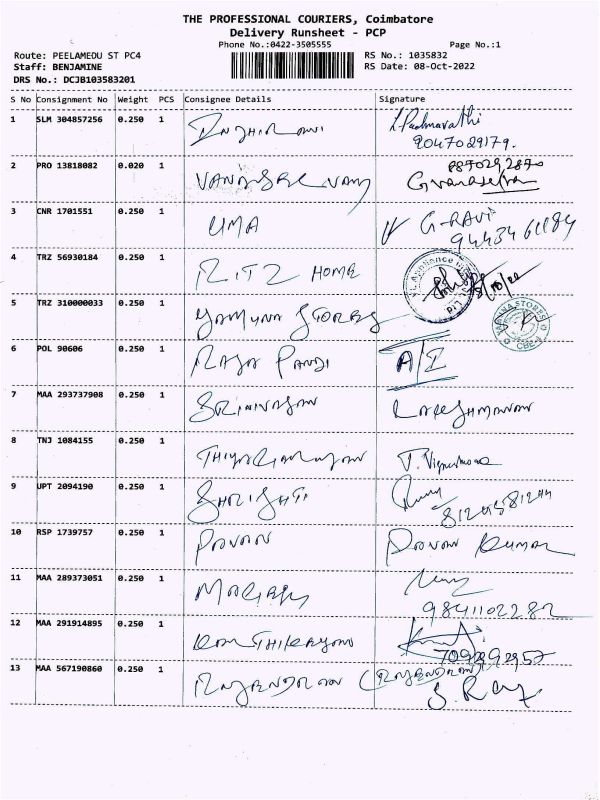 THE PROFESSIONAL COURIERS, Coimbatore
Delivery Runsheet - PCP
Phone No.:0422-3505555
Page No.:1
Route: PEELAMEDU ST PC4
RS No.: 1035832
Staff: BENJAMINE
RS Date: 08-Oct-2022
DRS No.: DCJB103583201
S No Consignment No Weight PCS Consignee Details Signature
1 SLM 304857256 0.250 1
2 PRO 13818082 0.020 1
3 CNR 1701551 0.250 1 UMA G-RAVI
4 TRZ 56930184 0.250 1 RITZ HOME
5 TRZ 310000033 0.250 1 YAMUNA STORES
6 POL 90606 0.250 1 RAJA PANDI
7 MAA 293737908 0.250 1 SRINIVASAN
8 TNJ 1084155 0.250 1
9 UPT 2094190 0.250 1
10 RSP 1739757 0.250 1 PAVAN PAVAN KUMAR
11 MAA 289373051 0.250 1
9841102282
12 MAA 291914895 0.250 1
7092892957
13 MAA 567190860 0.250 1 RAJENDRAN